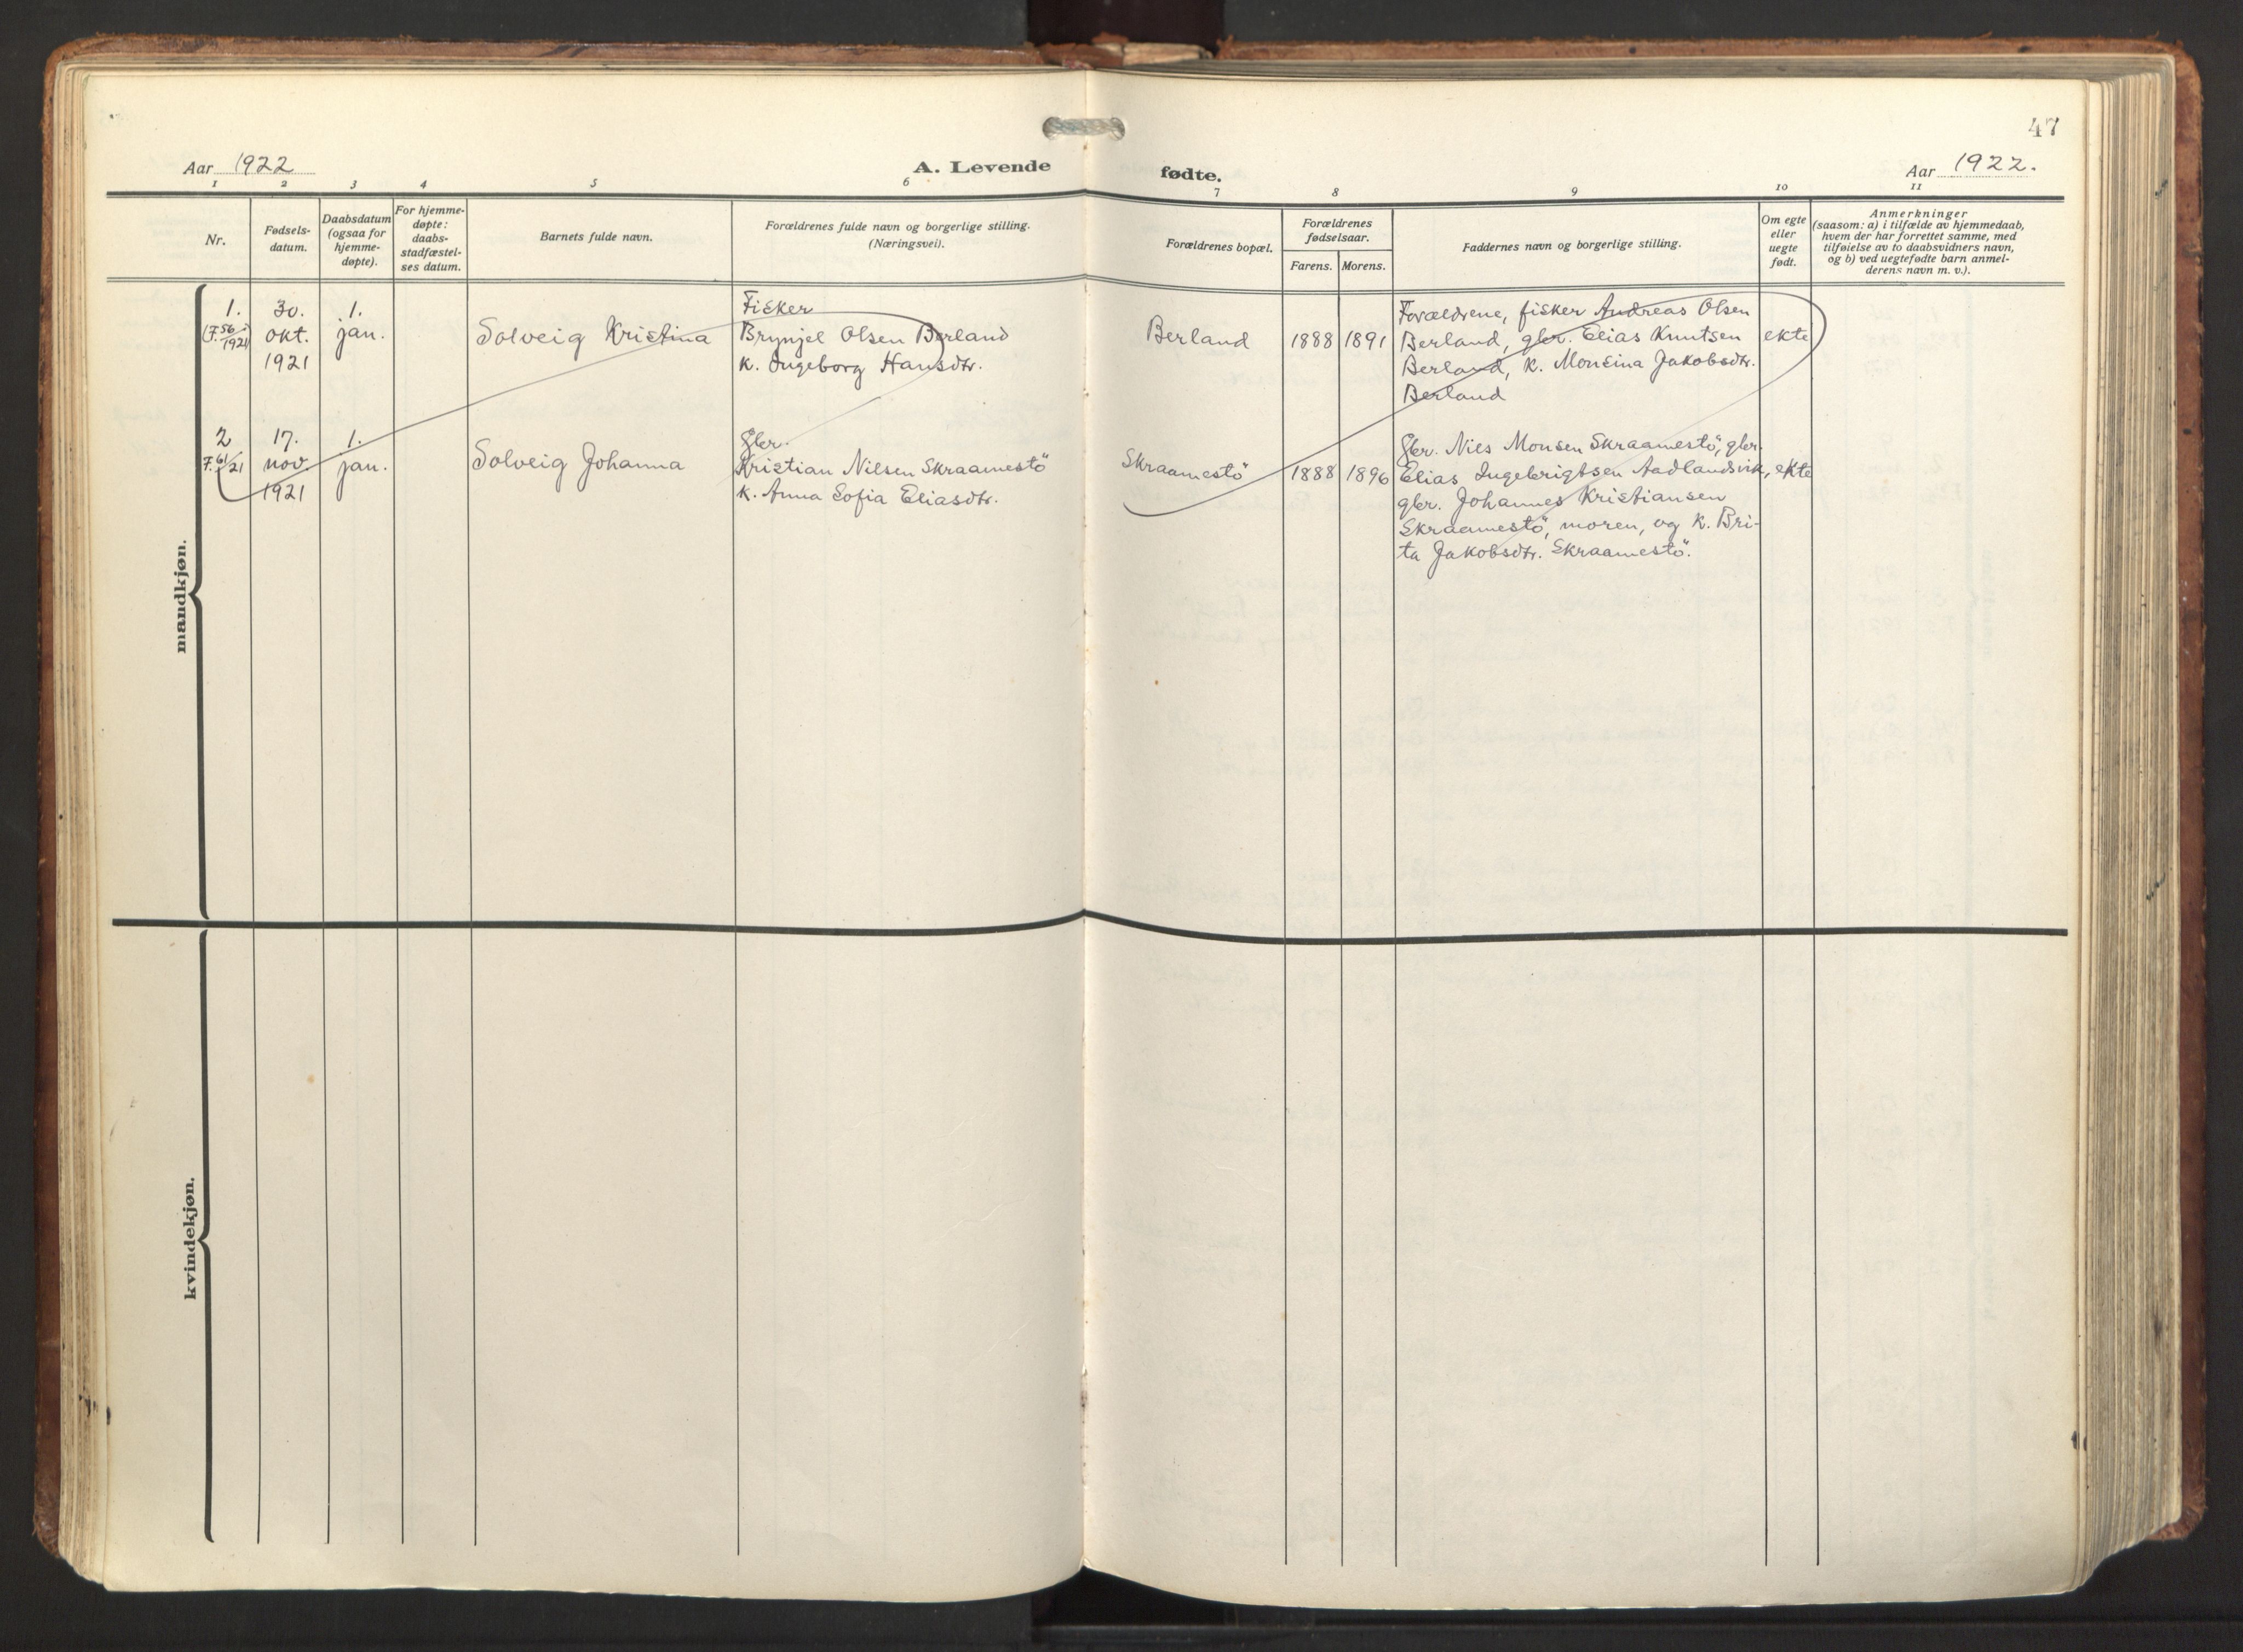 47
Aar 1922
A. Levende fødte.
Aar 1922.
1 2 3 4 5 6 7 8 9 10 11
Nr.
Fødsels-
datum.
Daabsdatum
(ogsaa for
hjemme-
døpte).
For hjemme-
døpte:
daabs-
stadfæstel-
ses datum.
Barnets fulde navn.
Forældrenes fulde navn og borgerlige stilling.
(Næringsvei).
Forældrenes bopæl.
Forældrenes
fødselsaar.
Farens. Morens.
Faddernes navn og borgerlige stilling.
Om egte
eller
uegte
født.
Anmerkninger
(saasom: a) i tilfælde av hjemmedaab,
hvem der har forrettet samme, med
tilføielse av to daabsvidners navn,
og b) ved uegtefødte barn anmel-
derens navn m. v.).
mandkjøn.
1.
(F. 56 i
1921)
30.
okt.
1921
1.
jan.
Solveig Kristina
Fisker
Brynjel Olsen Berland
k. Ingeborg Hansdtr.
Berland
1888
1891
Forældrene, fisker Andreas Olsen
Berland, gbr. Elias Knutsen
Berland, k. Monsina Jakobsdtr.
Berland
ekte
2
F. 61/21
17.
nov
1921
1.
jan.
Solveig Johanna
Gbr.
Kristian Nilsen Skraamestö
k. Anna Sofia Eliasdtr.
Skraamestö
1888
1896
Gbr. Nils Monsen Skraamestö, gbr.
Elias Ingebrigtsen Aadlandsvik,
gbr. Johannes Kristiansen
Skraamestö, moren, og k. Bri-
ta Jakobsdtr. Skraamestö.
ekte
kvindekjøn.